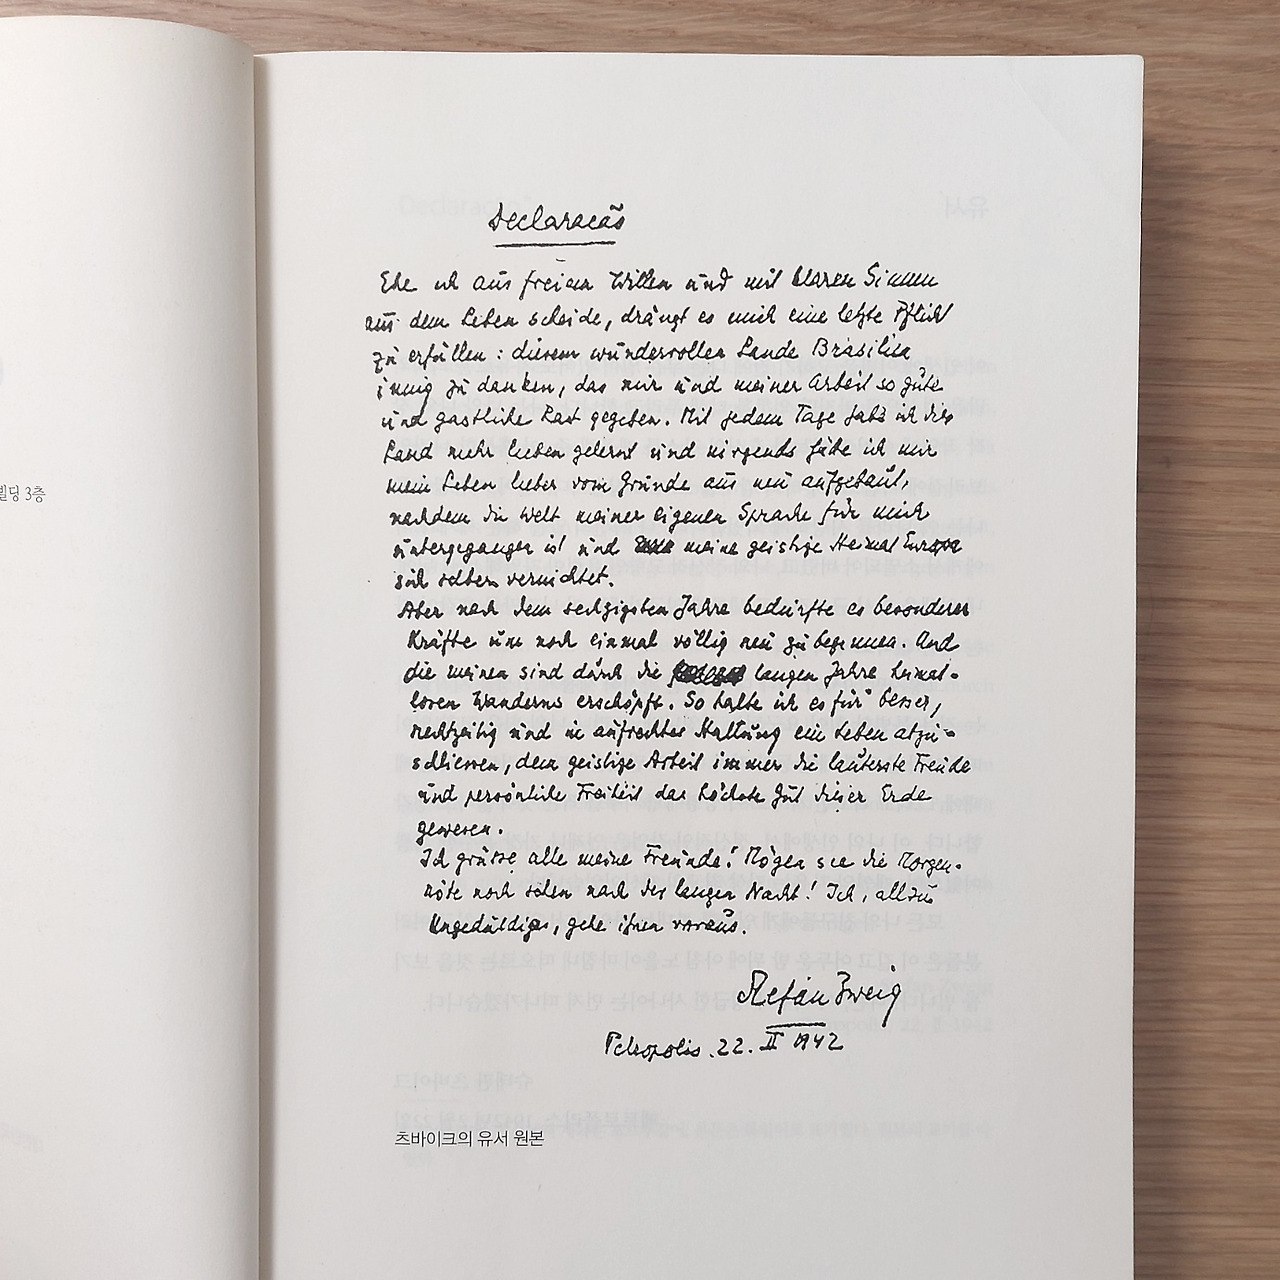 빌딩 3층
Declaracão
Ehe ich aus freiem Willen und mit klaren Sinnen
aus dem Leben scheide, drängt es mich eine letzte Pflicht
zu erfüllen: diesem wundervollen Lande Brasilien
innig zu danken, das mir und meiner Arbeit so gute
und gastliche Rast gegeben. Mit jedem Tage habe ich dies
Land mehr lieben gelernt und nirgends hätte ich mir
mein Leben lieber vom Grunde aus neu aufgebaut,
nachdem die Welt meiner eigenen Sprache für mich
untergegangen ist und meine geistige Heimat Europa
sich selber vernichtet.
Aber nach dem sechzigsten Jahre bedürfte es besonderer
Kräfte um noch einmal völlig neu zu beginnen. Und
die meinen sind durch die langen Jahre heimat-
losen Wanderns erschöpft. So halte ich es für besser,
rechtzeitig und in aufrechter Haltung ein Leben abzu-
schliessen, dem geistige Arbeit immer die lauterste Freude
und persönliche Freiheit das höchste Gut dieser Erde
gewesen.
Ich grüsse alle meine Freunde! Mögen sie die Morgen-
röte noch sehen nach der langen Nacht! Ich, allzu
Ungeduldiger, gehe ihnen voraus.
Stefan Zweig
Petropolis. 22. II 1942
츠바이크의 유서 원본